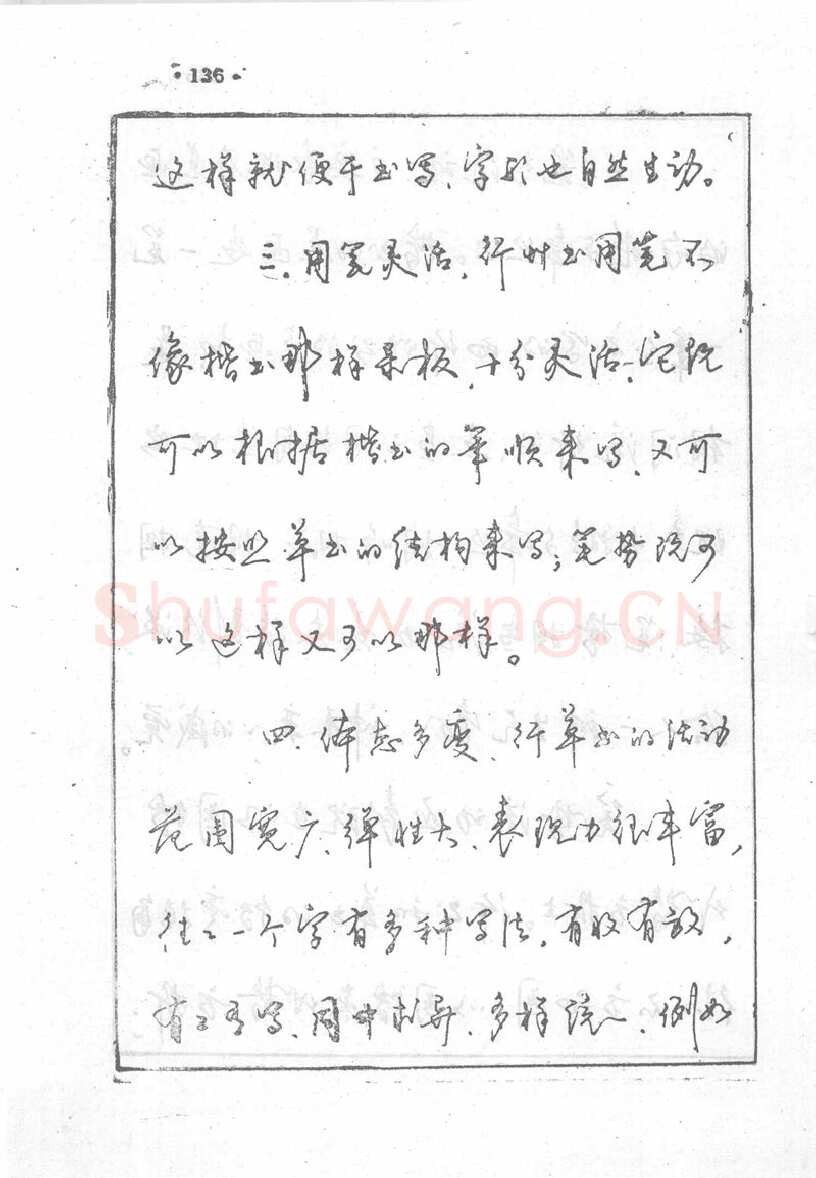 ·136·
这样就便于书写、字形也自然生动。
三、用笔灵活,行草书用笔不
像楷书那样呆板,十分灵活,它既
可以根据楷书的笔顺来写、又可
以按照草书的结构来写;笔势既可
以这样又可以那样。
Shufawang.CN
四、体态多变、行草书的活动
范围宽广、弹性大、表现力很丰富,
往往一个字有多种写法,有收有放,
同中求异、多样统一、例如